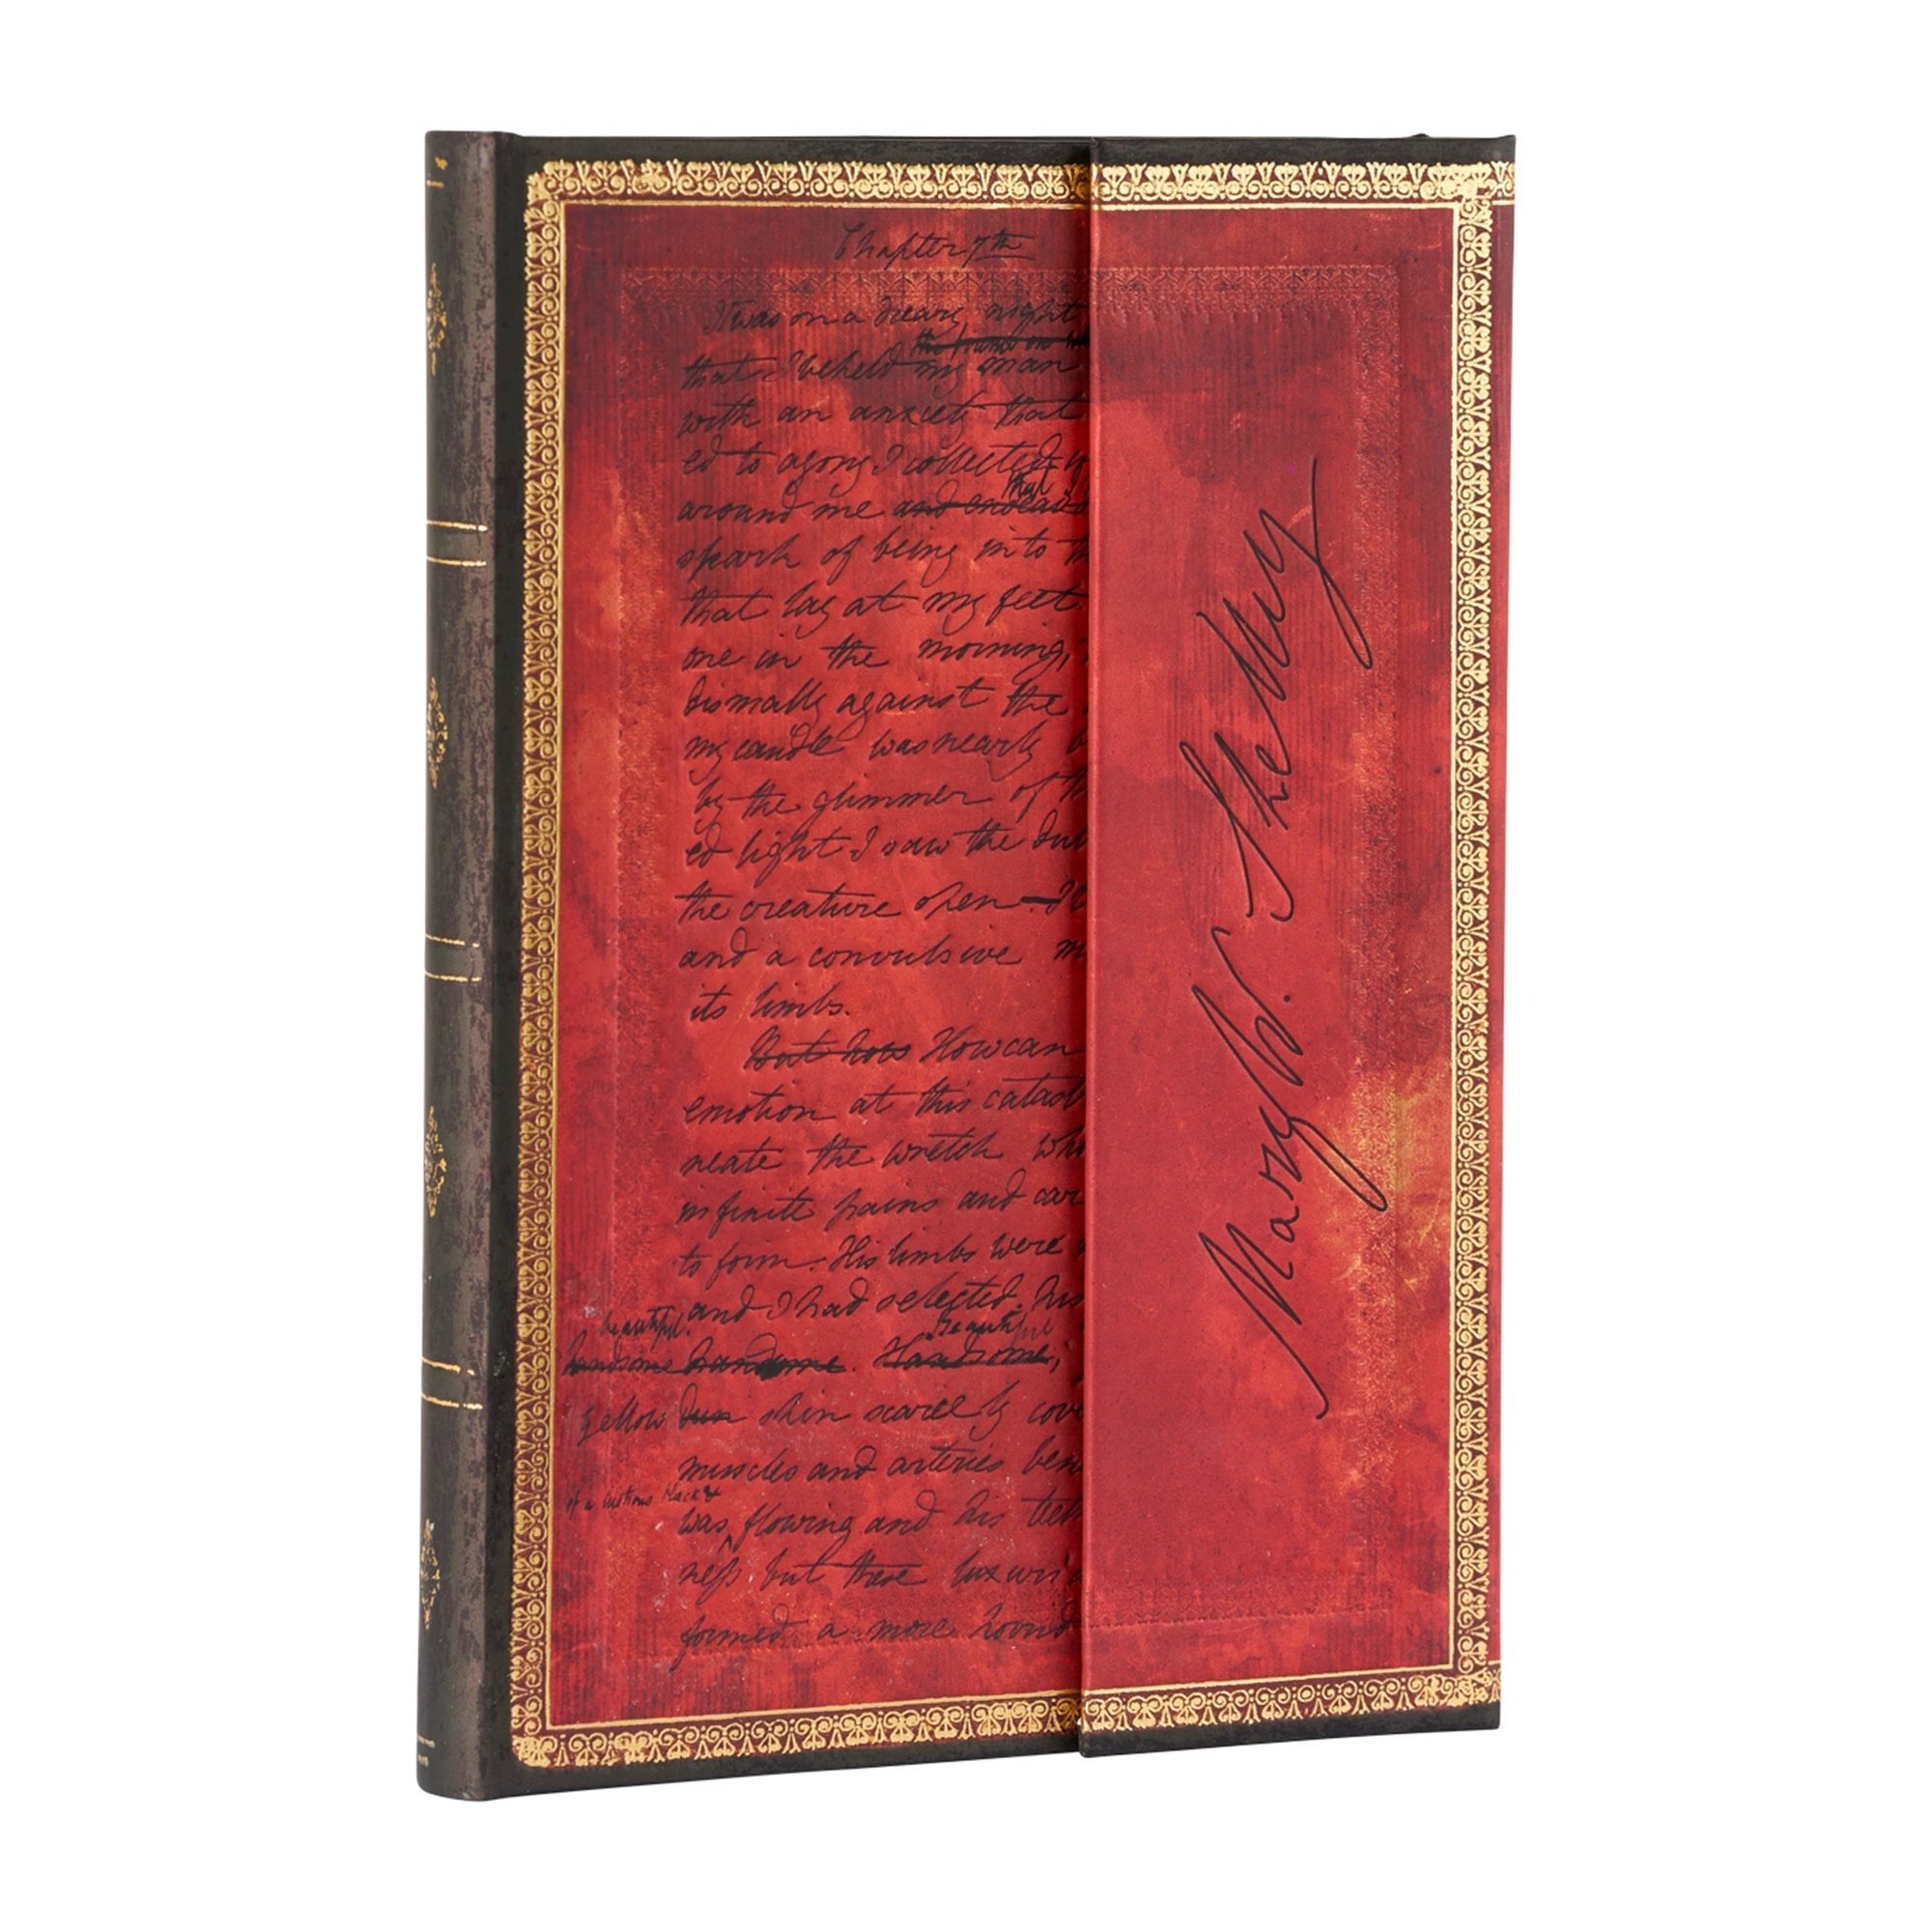 Chapter 7th
It was on a dreary night
that I beheld my man
with an anxiety that
ed to agony I collected
that
around me and endeavo
spark of being into th
that lay at my feet.
one in the morning,
dismally against the
my candle was nearly b
by the glimmer of th
ed light I saw the dul
the creature open I
and a convulsive m
its limbs.
But how How can
emotion at this catast
neate the wretch who
infinite pains and car
to form. His limbs were
and I had selected his
beautiful. Beautiful
handsome handsome. Handsome,
Yellow dun skin scarcely cov
muscles and arteries bene
of a lustrous black &
was flowing and his teeth
ness but these luxuri
formed a more horrid
Mary W. Shelley